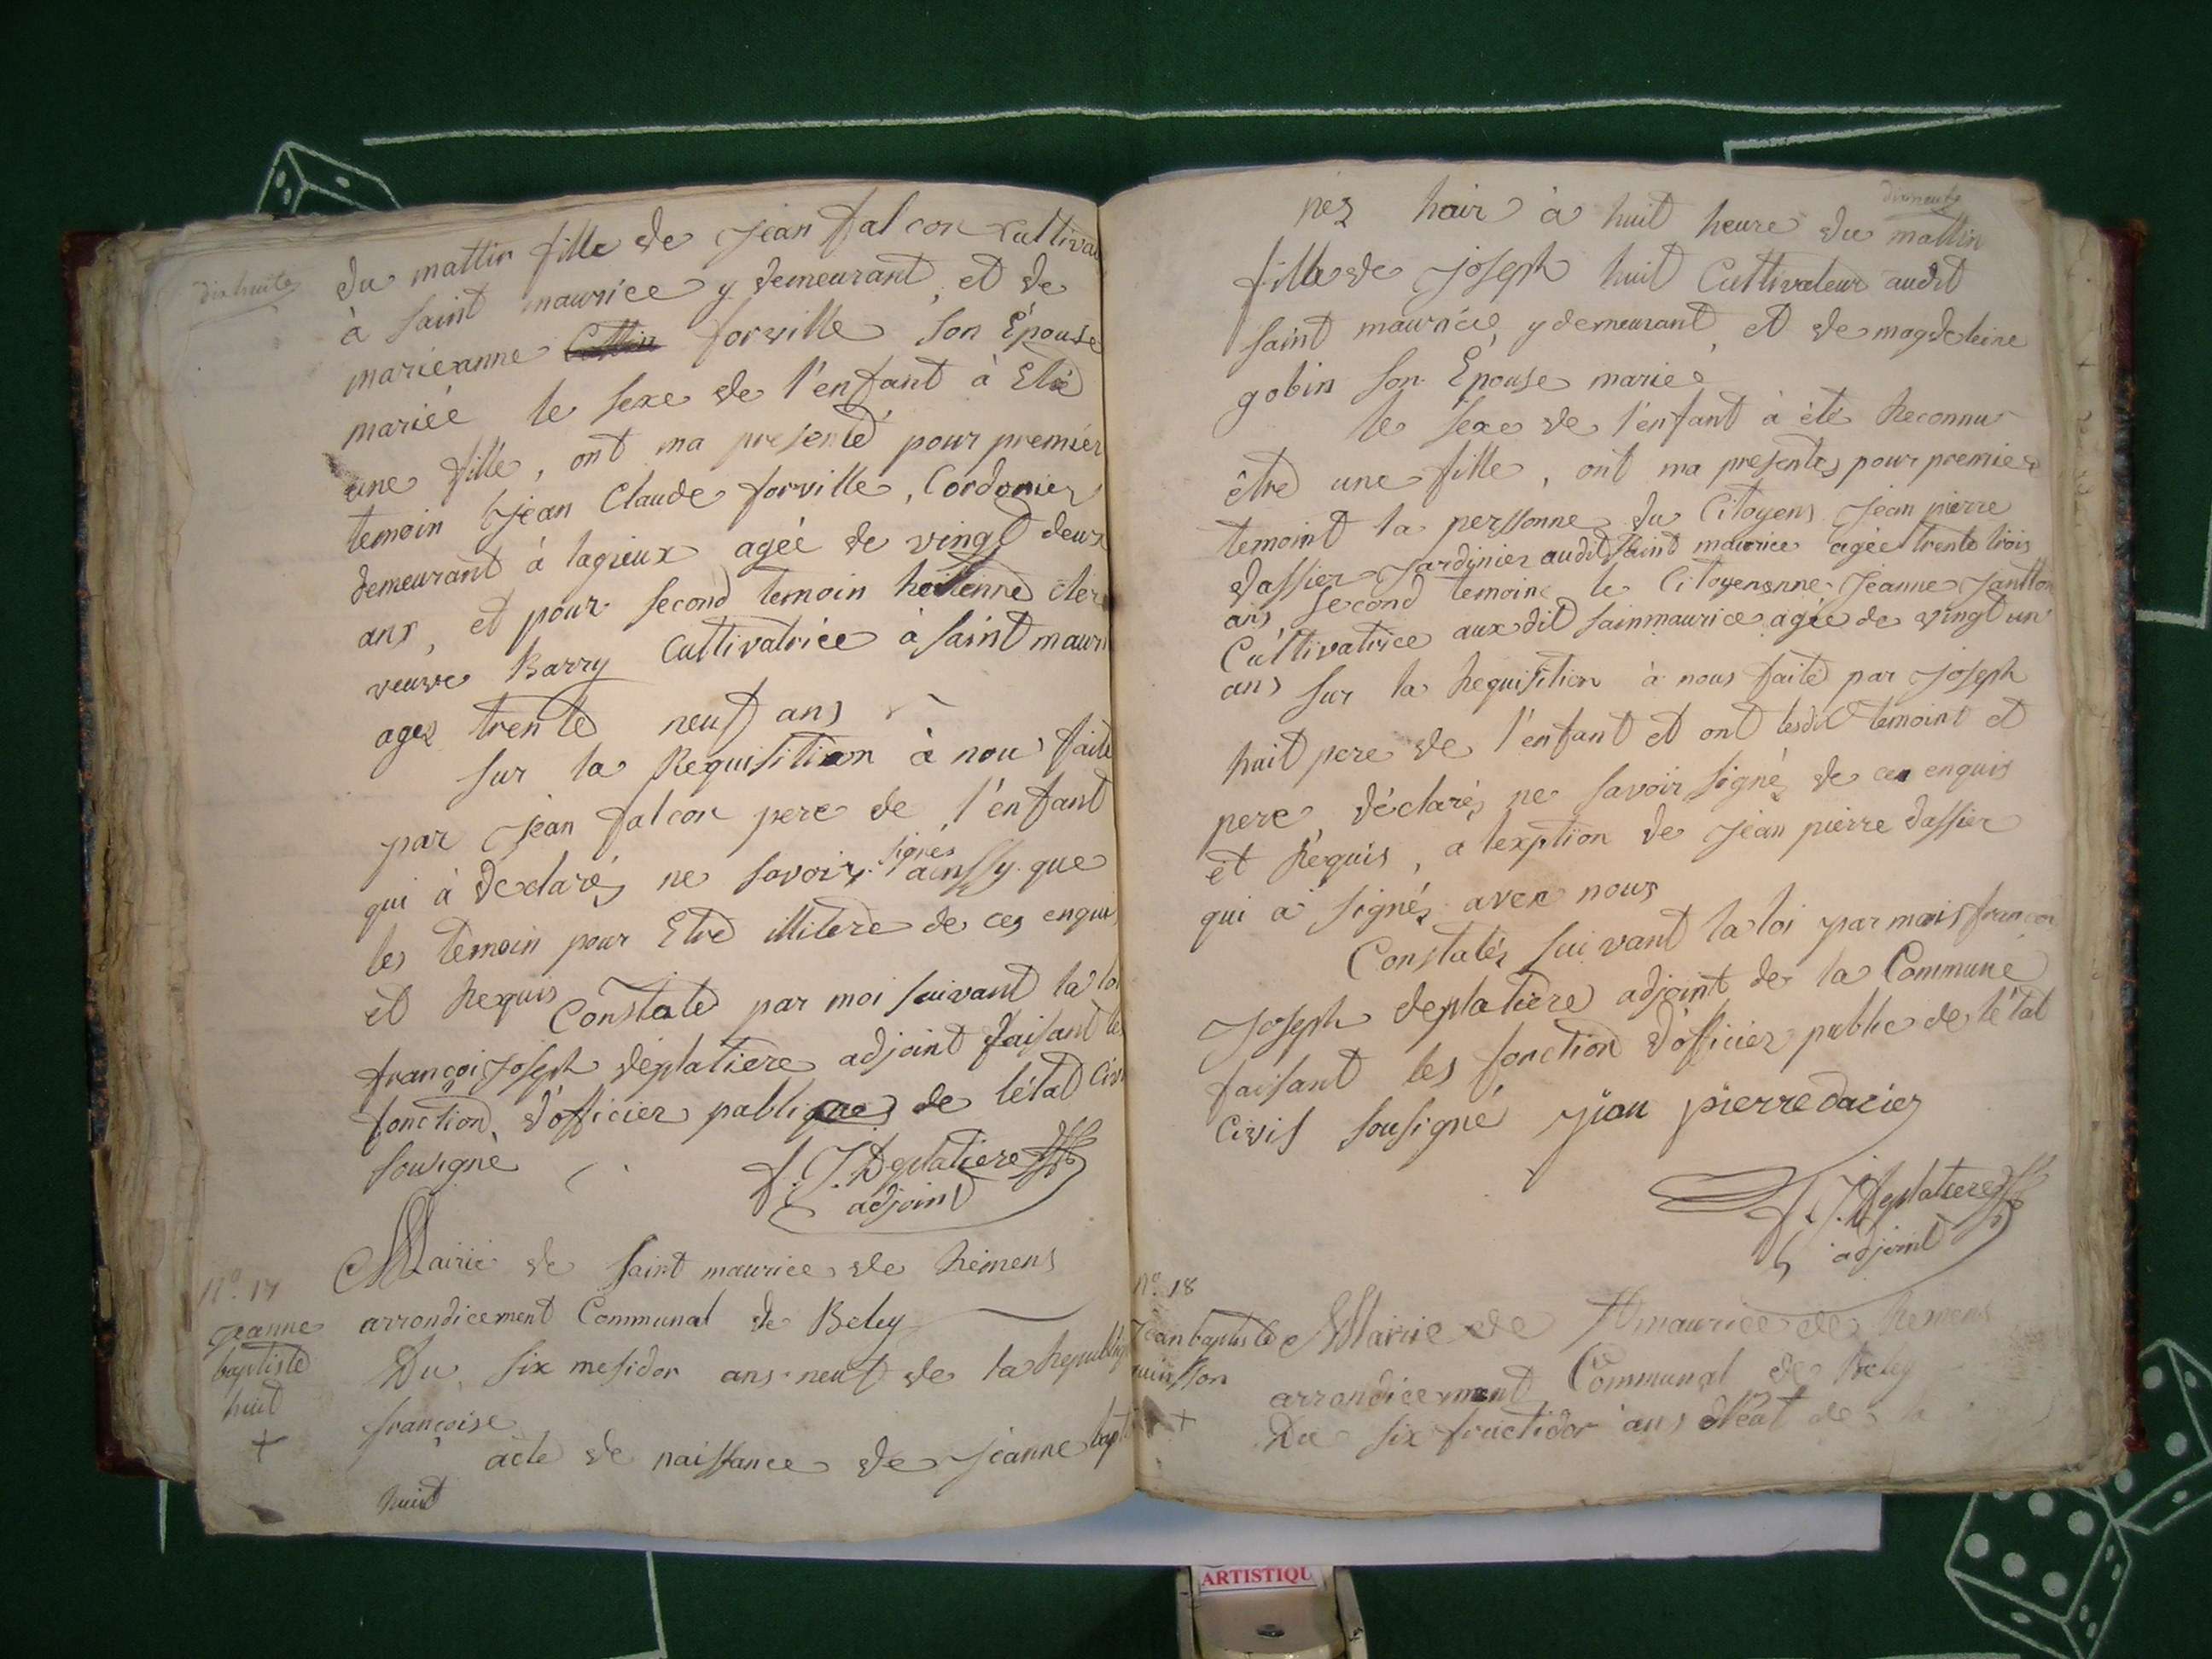 dixhuite
du mattin fille de jean falcon Cultiva
à saint maurice y demeurant, et de
marieanne forville son Épouse
mariéé le sexe de l'enfant à Eté
une fille, ont ma presenté pour premier
temoin jean Claude forville, Cordonier
demeurant à lagieux agéé de vingt deux
ans, et pour second temoin
veuve Barry Cultivatrice à saint mauri
agez trente neuf ans
sur la Requisition à nous faite
par jean falcon pere de l'enfant
qui à declaréz ne savoir signés ainssy que
les temoin pour Etre illitere de ces enquis
et Requis
Constate par moi suivant la loi
françoi joseph deplatiere adjoint faisant les
fonction d'officier publique de létat Civi
sousigné
f. J. Deplatiere
adjoint
No. 17
jeanne
baptiste
huit
+
Mairie de saint maurice de Rémens
arrondicement Communal de Beley
Du six mesidor ans neuf de la Republiq
françoise
acte de naissance de jeanne bapti
huit
dixneufe
néz hair à huit heure du mattin
fille de joseph huit Cultivateur audit
saint maurice, y demeurant, et de magdeleine
gobin son Épouse mariéé
le sexe de l'enfant à été Reconnu
être une fille, ont ma presentéz pour premier
temoint la perssonne du Citoyens jean pierre
dassier jardinier audit saint maurice agéé trente trois
ans second temoin le Citoyenenne jeanne
Cultivatrice aux dit sainmaurice agée de vingt un
ans sur la Requisition à nous faite par joseph
huit pere de l'enfant et ont lesdit temoint et
pere, déclaréz ne savoir signé de ce enquis
et Réquis, a lexption de jean pierre dassier
qui a signéz avec nous
Constatéz suivant la loi par mois françoi
joseph deplatiere adjoint de la Commune
faisant les fonction d'officier public de létat
Civil sousigné jian pierre dacier
f. J. Deplatiere
adjoint
No. 18
jean baptiste
+
Mairie de St maurice de Remens
arrondicement Communal de Beley
Du six fructidor ans de la
ARTISTIQU